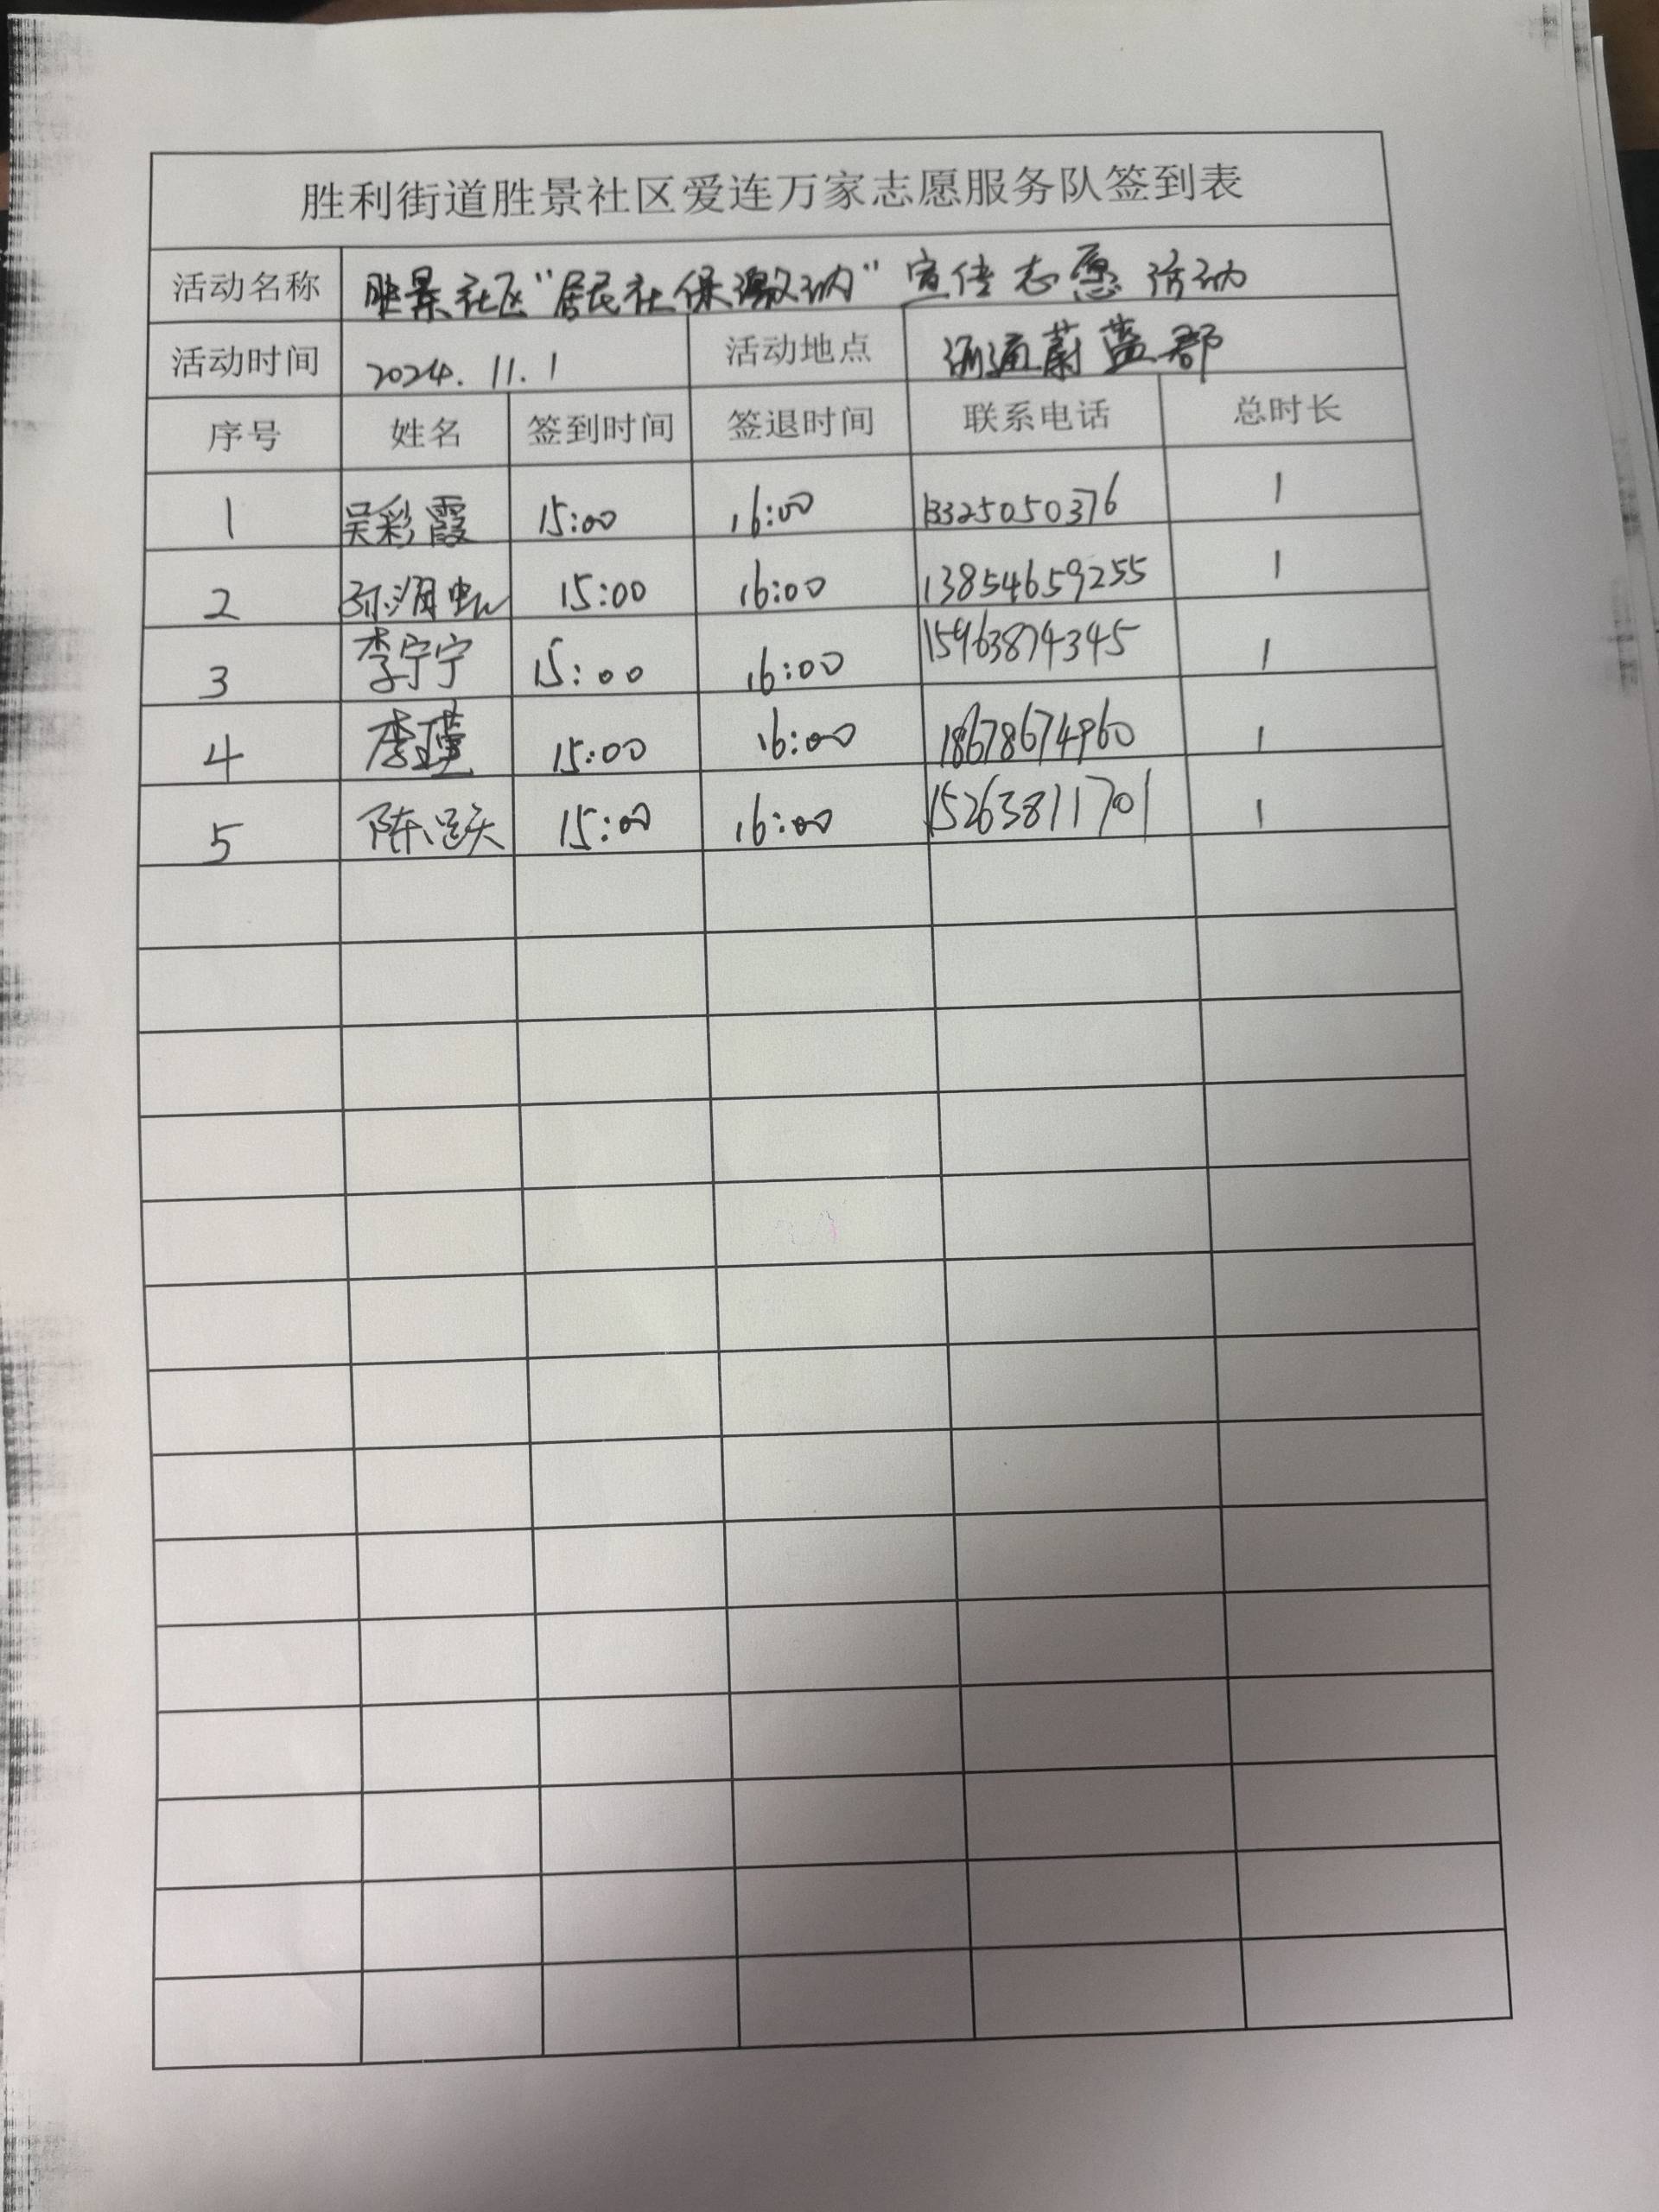 胜利街道胜景社区爱连万家志愿服务队签到表
活动名称 胜景社区"居民社保缴纳"宣传志愿活动
活动时间 2024.11.1 活动地点 蔚蓝郡
序号 姓名 签到时间 签退时间 联系电话 总时长
1 吴彩霞 15:00 16:00 13325050376 1
2 15:00 16:00 13854659255 1
3 李宁宁 15:00 16:00 15963874345 1
4 李瑾 15:00 16:00 18678674960 1
5 陈跃 15:00 16:00 15263811701 1